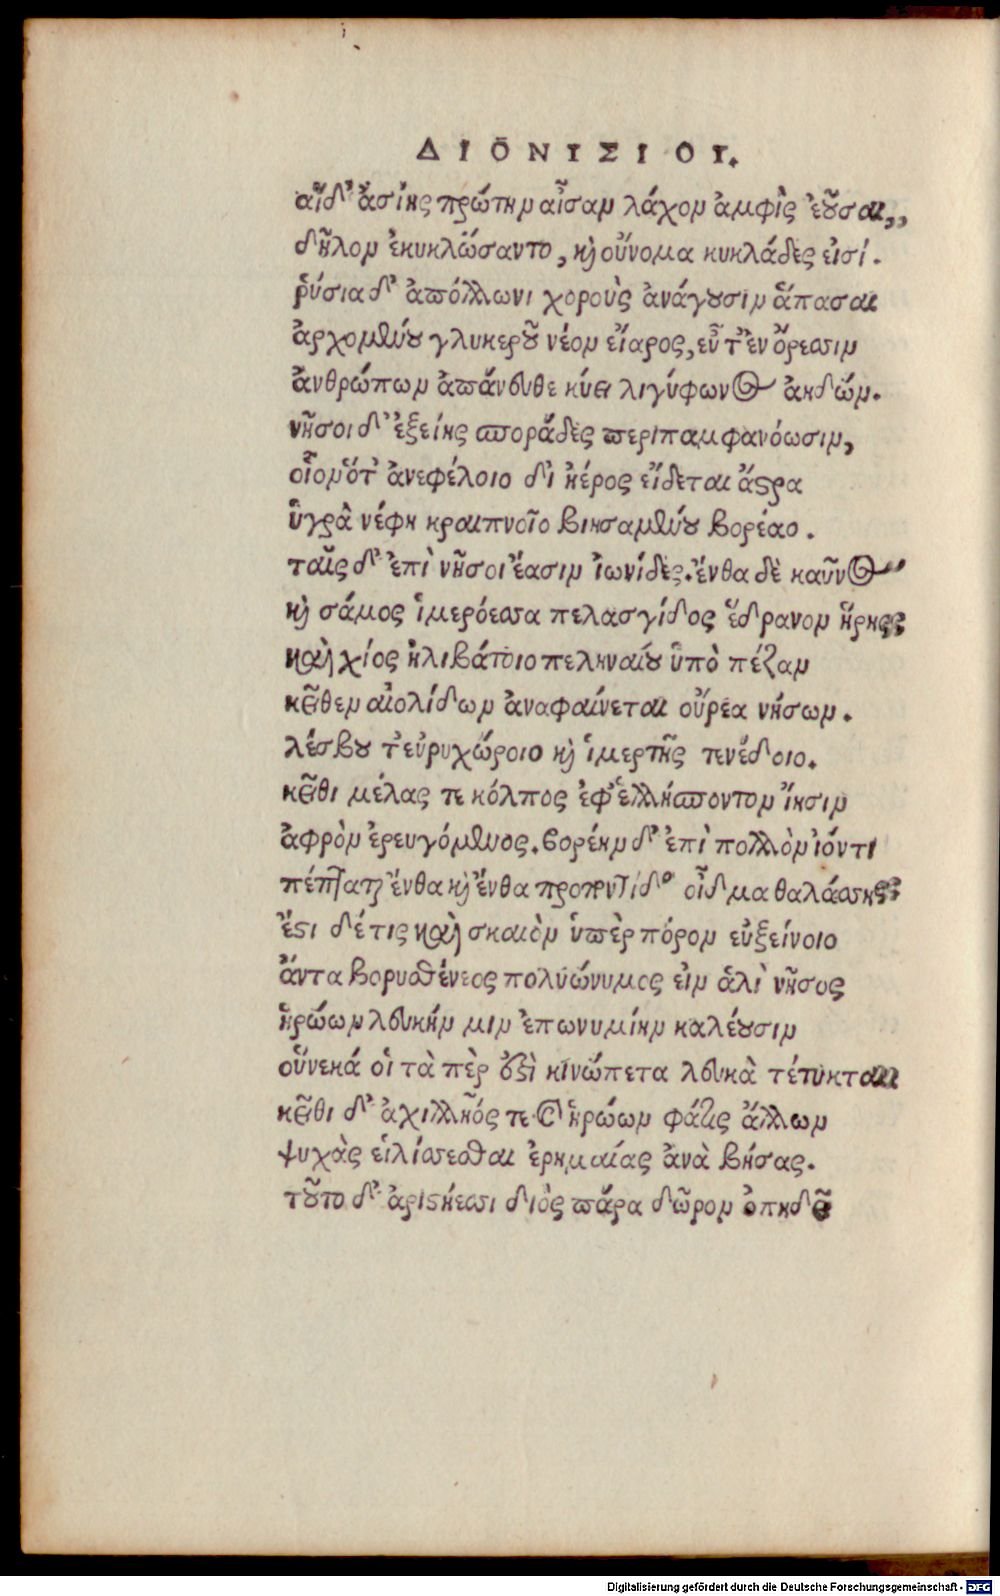 ΔΙΟΝΙΣΙΟΙ.
αἵδ' ἀσίης πρώτην αἶσαν λάχον ἀμφὶς ἐοῦσαι,,
δῆλον ἐκυκλώσαντο, καὶ οὔνομα κυκλάδες εἰσί.
ῥύσια δ' ἀπόλλωνι χοροὺς ἀνάγουσιν ἅπασαι
ἀρχομένου γλυκεροῦ νέον εἴαρος, εὖτ' ἐν ὄρεσσιν
ἀνθρώπων ἀπάνευθε κύει λιγύφωνος ἀηδών.
νῆσοι δ' ἑξείης σποράδες περιπαμφανόωσιν,
οἷον ὅτ' ἀνεφέλοιο δι ἠέρος εἴδεται ἄστρα
ὑγρὰ νέφη κραιπνοῖο βιησαμένου βορέαο.
ταῖς δ' ἐπὶ νῆσοι ἔασιν ἰωνίδες. ἔνθα δὲ καῦνος
καὶ σάμος ἱμερόεσσα πελασγίδος ἕδρανον ἥρης
καὶ χίος ἠλιβάτοιο πεληναίου ὑπὸ πέζαν
κεῖθεν αἰολίδων ἀναφαίνεται οὔρεα νήσων.
λέσβου τ' εὐρυχώροιο καὶ ἱμερτῆς τενέδοιο.
κεῖθι μέλας τε κόλπος ἐφ' ἑλλήσποντον ἵησιν
ἀφρὸν ἐρευγόμενος. βορέην δ' ἐπὶ πολλὸν ἰόντι
πέπταται ἔνθα καὶ ἔνθα προποντίδος οἶδμα θαλάσσης
ἔστι δέ τις καὶ σκαιὸν ὑπὲρ πόρον εὐξείνοιο
ἄντα βορυσθένεος πολυώνυμος εἰν ἁλὶ νῆσος
ἡρώων λευκήν μιν ἐπωνυμίην καλέουσιν
οὕνεκά οἱ τὰ πὲρ ἐστὶ κινώπετα λευκὰ τέτυκται
κεῖθι δ' ἀχιλλῆός τε καὶ ἡρώων φάτις ἄλλων
ψυχὰς εἱλίσσεσθαι ἐρημαίας ἀνὰ βήσας.
τοῦτο δ' ἀριστήεσσι διὸς πάρα δῶρον ὀπηδεῖ
Digitalisierung gefördert durch die Deutsche Forschungsgemeinschaft - DFG